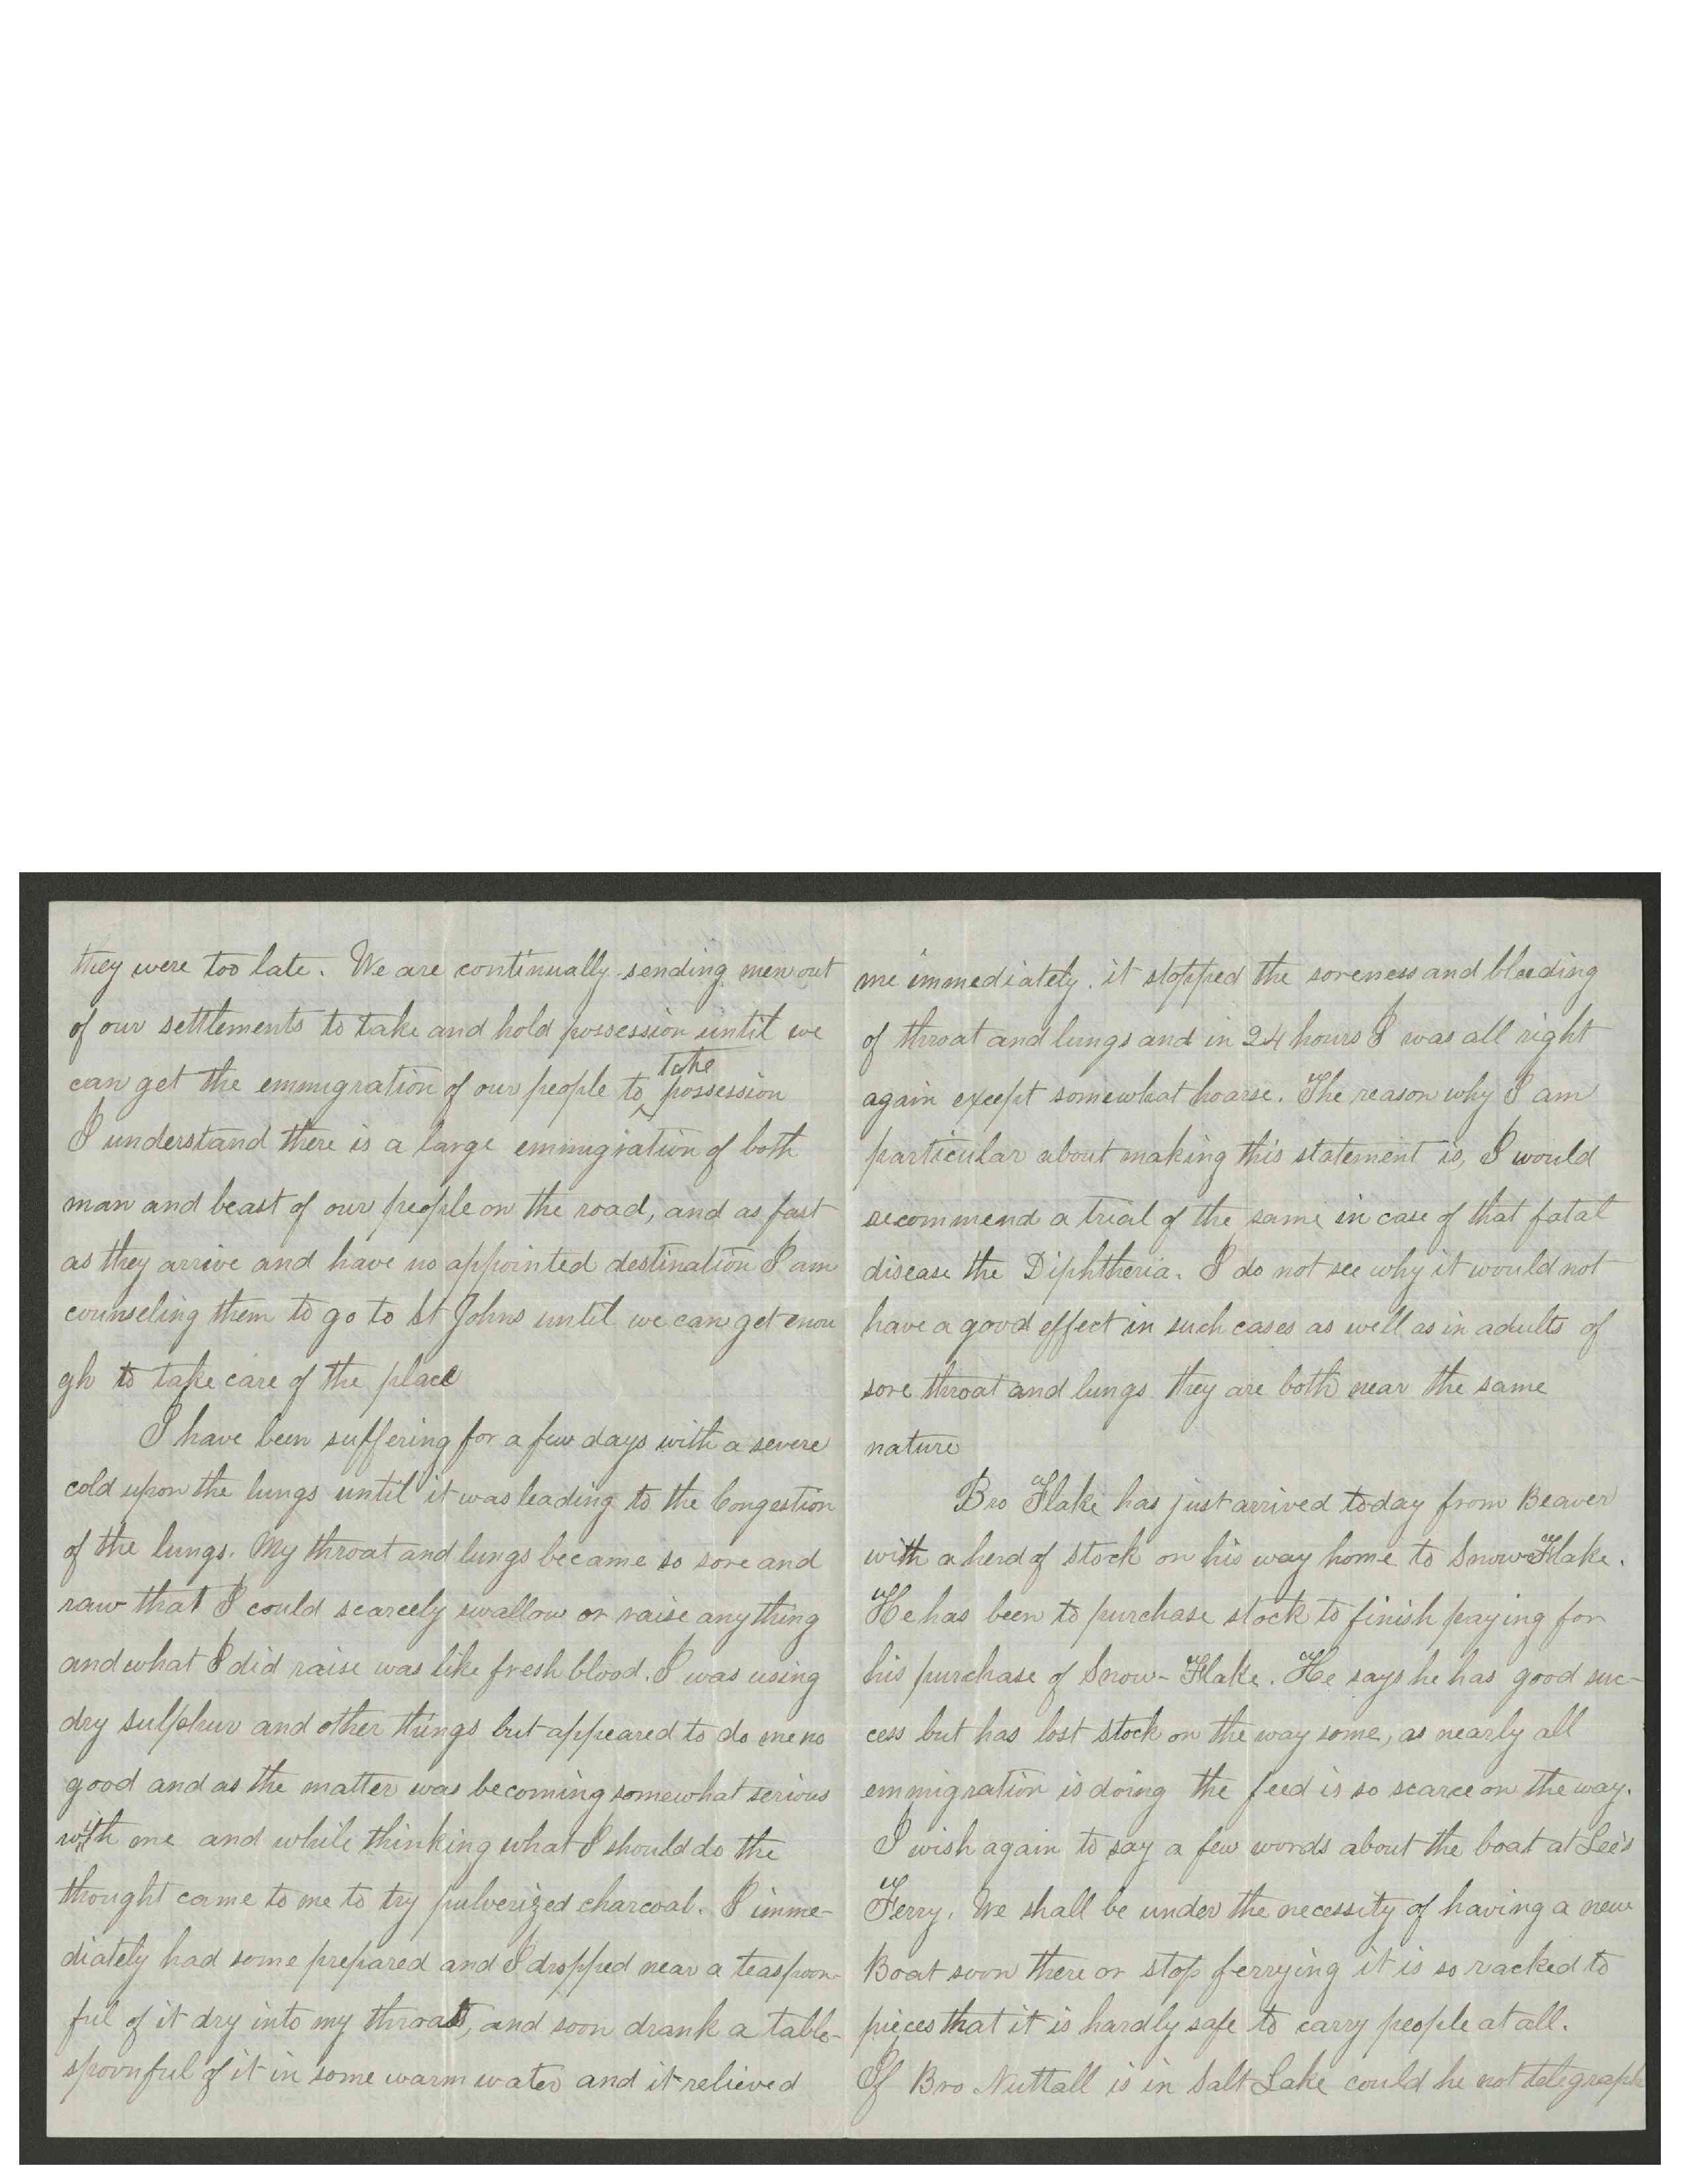 they were too late. We are continually sending men out
of our settlements to take and hold possession until we
can get the emmigration of our people to take possession
I understand there is a large emmigration of both
man and beast of our people on the road, and as fast
as they arrive and have no appointed destination I am
counseling them to go to St Johns until we can get enou
gh to take care of the place
I have been suffering for a few days with a severe
cold upon the lungs until it was leading to the Congestion
of the lungs. My throat and lungs became so sore and
raw that I could scarcely swallow or raise any thing
and what I did raise was like fresh blood. I was using
dry sulphur and other things but appeared to do me no
good and as the matter was becoming somewhat serious
with me and while thinking what I should do the
thought came to me to try pulverized charcoal. I imme-
diately had some prepared and I dropped near a teaspoon-
ful of it dry into my throat, and soon drank a table-
spoonful of it in some warm water and it relieved
me immediately. it stopped the soreness and bleeding
of throat and lungs and in 24 hours I was all right
again except somewhat hoarse. The reason why I am
particular about making this statement is, I would
recommend a trial of the same in case of that fatal
disease the Diphtheria. I do not see why it would not
have a good effect in such cases as well as in adults of
sore throat and lungs they are both near the same
nature
Bro Flake has just arrived today from Beaver
with a herd of stock on his way home to Snow-Flake.
He has been to purchase stock to finish paying for
his purchase of Snow-Flake. He says he has good suc-
cess but has lost stock on the way some, as nearly all
emmigration is doing the feed is so scarce on the way.
I wish again to say a few words about the boat at Lee's
Ferry. We shall be under the necessity of having a new
Boat soon there or stop ferrying it is so racked to
pieces that it is hardly safe to carry people at all.
If Bro Nuttall is in Salt Lake could he not telegraph